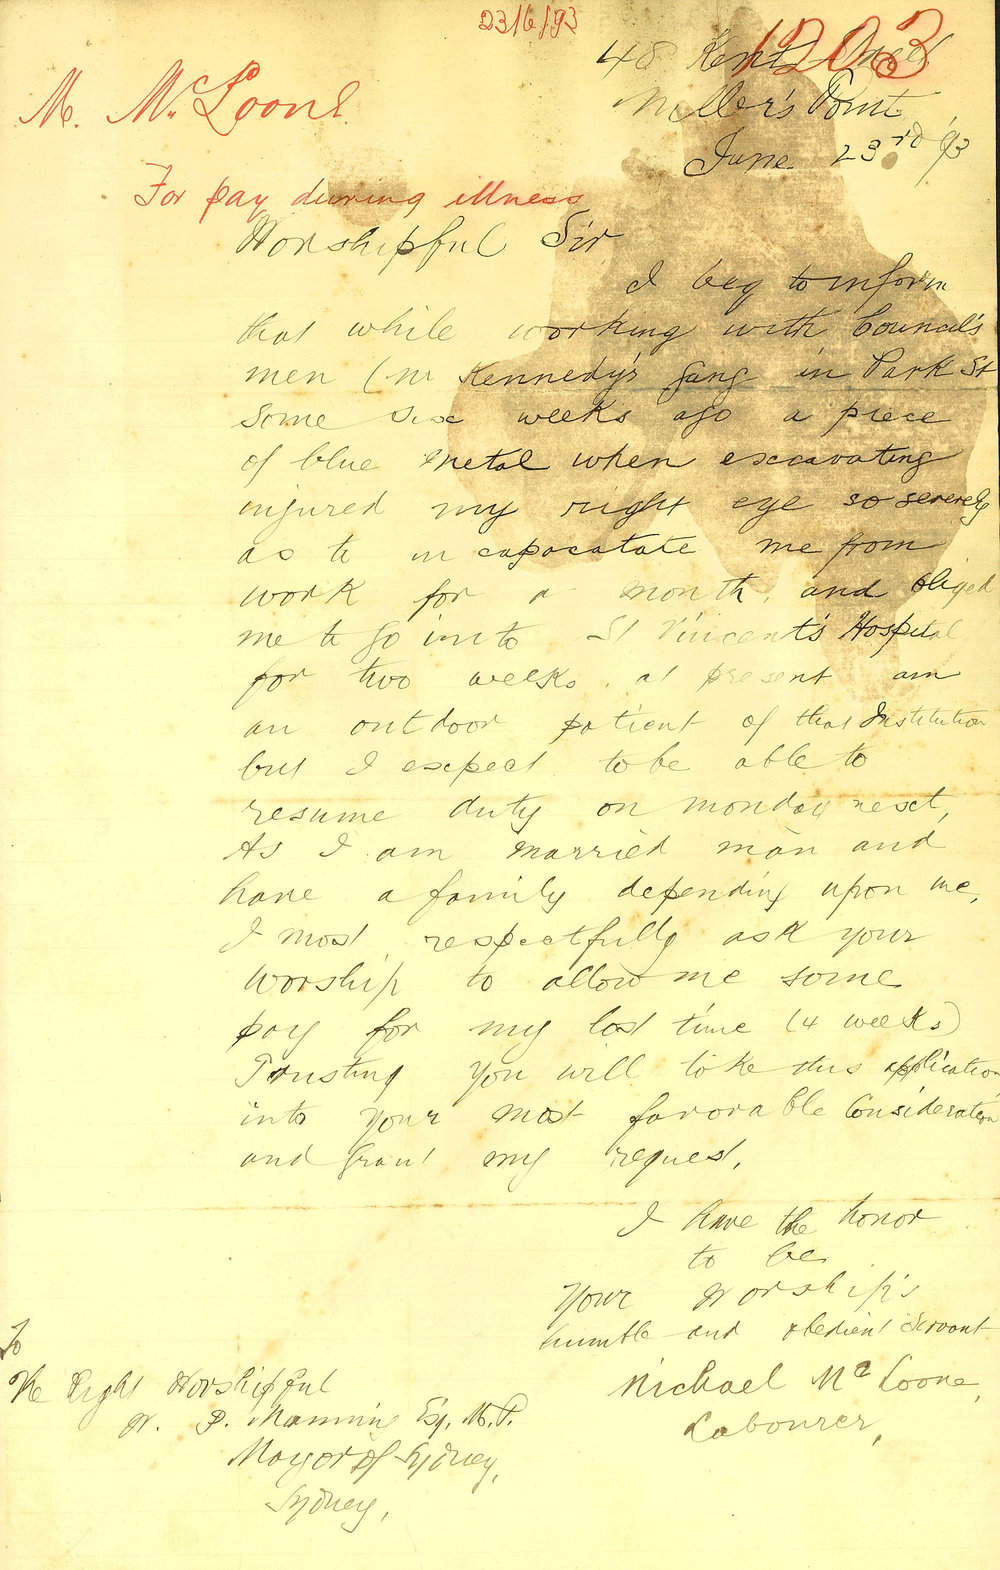 23/6/93
1203
48 Kent Street
Miller's Point
June 23rd 93
M. McLoone
For pay during illness
Worshipful Sir
I beg to inform
that while working with Council's
men (Mr Kennedy's Gang in Park St
some six weeks ago a piece
of blue metal when excavating
injured my right eye so severely
as to incapacatate me from
work for a month, and obliged
me to go into St Vincent's Hospital
for two weeks. at present am
an outdoor patient of that Institution
but I expect to be able to
resume duty on monday next,
As I am married man and
have a family depending upon me,
I most respectfully ask your
worship to allow me some
pay for my lost time (4 weeks)
Trusting you will take this application
into your most favorable Consideration
and grant my request.
I have the honor
to be
Your Worship's
humble and obedient Servant
Michael McLoone,
Labourer,
To
The Right Worshipful
W. P. Manning Esq. M.P.
Mayor of Sydney,
Sydney,